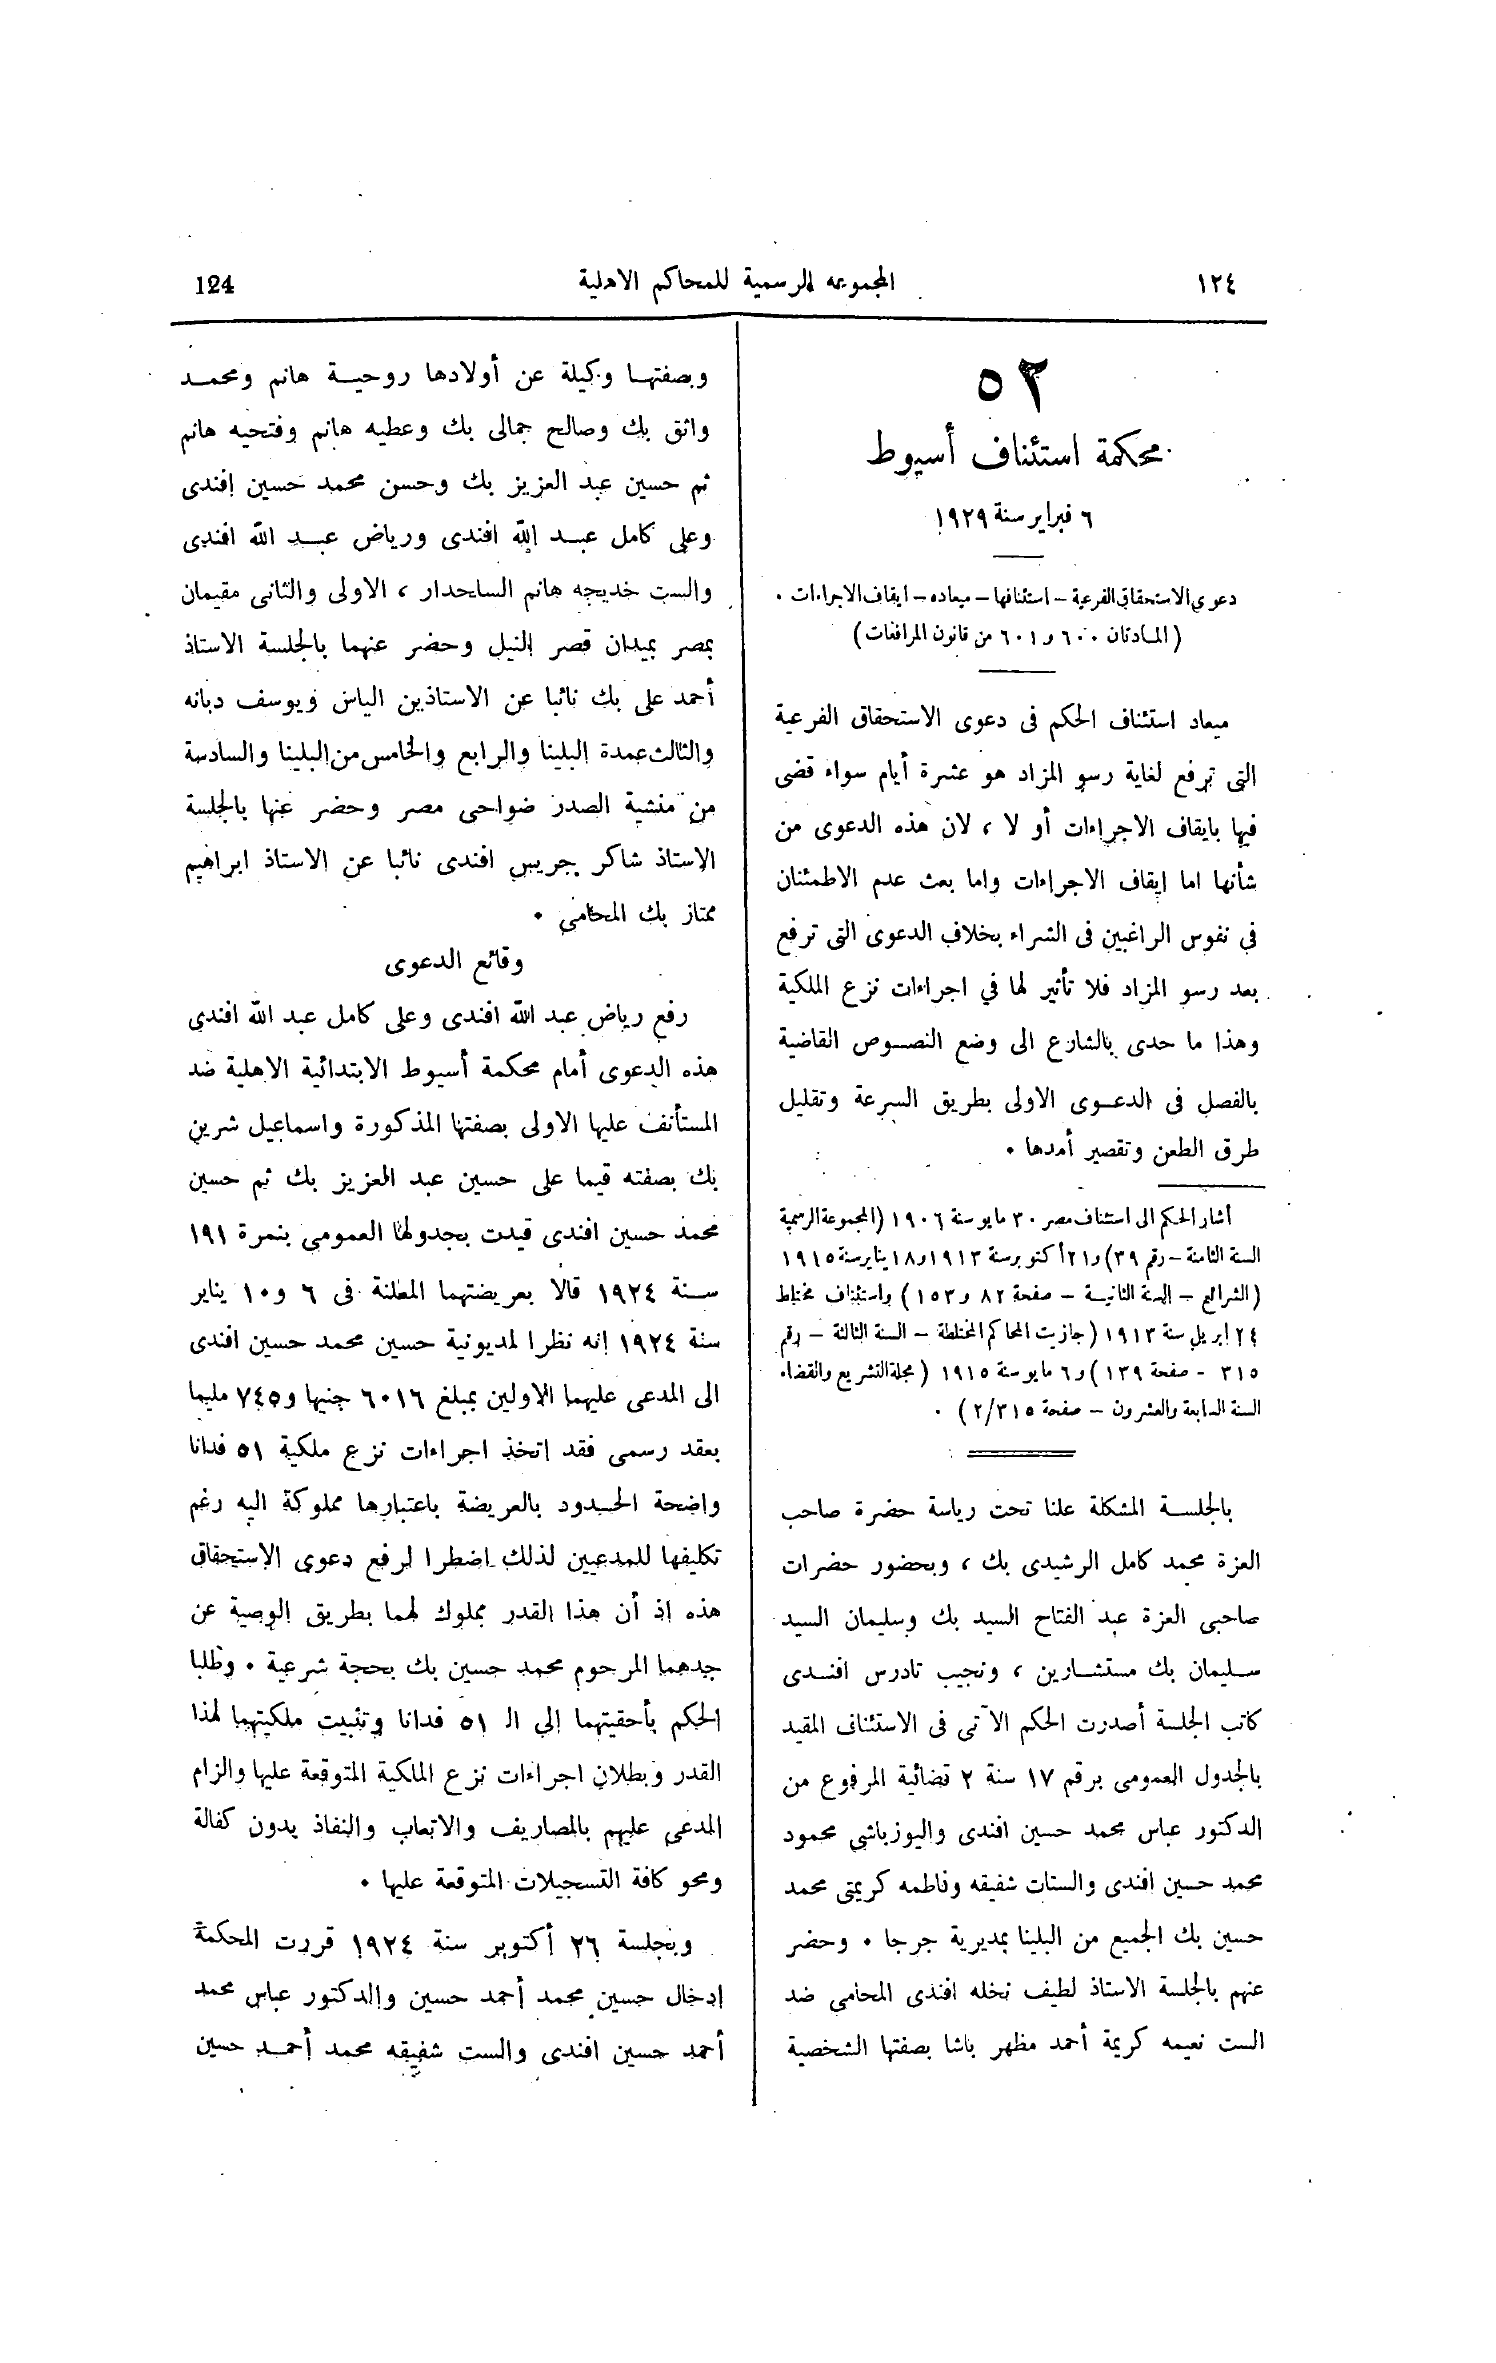 ١٢٤
المجموعه الرسمية للمحاكم الاهلية
124
٥٣
محكمة استئناف أسيوط
٦ فبراير سنة ١٩٢٩
دعوى الاستحقاق الفرعية – استئنافها – ميعاده – ايقاف الاجراءات .
(المادتان ٦٠٠ و ٦٠١ من قانون المرافعات)
ميعاد استئناف الحكم فى دعوى الاستحقاق الفرعية
التى ترفع لغاية رسو المزاد هو عشرة أيام سواء قضى
فيها بايقاف الاجراءات أو لا ، لان هذه الدعوى من
شأنها اما ايقاف الاجراءات واما بعث عدم الاطمئنان
في نفوس الراغبين فى الشراء بخلاف الدعوى التى ترفع
بعد رسو المزاد فلا تأثير لها في اجراءات نزع الملكية
وهذا ما حدى بالشارع الى وضع النصوص القاضية
بالفصل فى الدعوى الاولى بطريق السرعة وتقليل
طرق الطعن وتقصير أمدها .
أشار الحكم الى استئناف مصر ٣٠ مايو سنة ١٩٠٦ (المجموعة الرسمية
السنة الثامنة – رقم ٣٩) و٢١ أكتوبر سنة ١٩١٣ و١٨ يناير سنة ١٩١٥
(الشرائع – السنة الثانية – صفحة ٨٢ و ١٥٣) واستئناف مختلط
٢٤ ابريل سنة ١٩١٣ (جازيت المحاكم المختلطة – السنة الثالثة – رقم
٣١٥ - صفحة ١٣٩) و٦ مايو سنة ١٩١٥ (مجلة التشريع والقضاء
السنة السابعة والعشرون – صفحة ٢/٣١٥) .
بالجلسة المشكلة علنا تحت رياسة حضرة صاحب
العزة محمد كامل الرشيدى بك ، وبحضور حضرات
صاحبى العزة عبد الفتاح السيد بك وسليمان السيد
سليمان بك مستشارين ، ونجيب تادرس افندى
كاتب الجلسة أصدرت الحكم الآتى فى الاستئناف المقيد
بالجدول العمومى برقم ١٧ سنة ٢ قضائية المرفوع من
الدكتور عباس محمد حسين افندى واليوزباشي محمود
محمد حسين افندى والستات شفيقه وفاطمه كريمتى محمد
حسين بك الجميع من البلينا بمديرية جرجا . وحضر
عنهم بالجلسة الاستاذ لطيف نخله افندى المحامى ضد
الست نعيمه كريمة أحمد مظهر باشا بصفتها الشخصية
وبصفتها وكيلة عن أولادها روحية هانم ومحمد
واثق بك وصالح جمالى بك وعطيه هانم وفتحيه هانم
ثم حسين عبد العزيز بك وحسن محمد حسين افندى
وعلى كامل عبد الله افندى ورياض عبد الله افندى
والست خديجه هانم السلحدار ، الاولى والثانى مقيمان
بمصر بميدان قصر النيل وحضر عنهما بالجلسة الاستاذ
أحمد على بك نائبا عن الاستاذين الياس ويوسف دبانه
والثالث عمدة البلينا والرابع والخامس من البلينا والسادسة
من منشية الصدر ضواحى مصر وحضر عنها بالجلسة
الاستاذ شاكر جريس افندى نائبا عن الاستاذ ابراهيم
ممتاز بك المحامى .
وقائع الدعوى
رفع رياض عبد الله افندى وعلى كامل عبد الله افندى
هذه الدعوى أمام محكمة أسيوط الابتدائية الاهلية ضد
المستأنف عليها الاولى بصفتها المذكورة واسماعيل شرين
بك بصفته قيما على حسين عبد العزيز بك ثم حسين
محمد حسين افندى قيدت بجدولها العمومى بنمرة ١٩١
سنة ١٩٢٤ قالا بعريضتهما المعلنة فى ٦ و١٠ يناير
سنة ١٩٢٤ إنه نظرا لمديونية حسين محمد حسين افندى
الى المدعى عليهما الاولين بمبلغ ٦٠١٦ جنيها و٧٤٥ مليما
بعقد رسمى فقد اتخذ اجراءات نزع ملكية ٥١ فدانا
واضحة الحدود بالعريضة باعتبارها مملوكة اليه رغم
تكليفها للمدعيين لذلك اضطرا لرفع دعوى الاستحقاق
هذه اذ أن هذا القدر مملوك لهما بطريق الوصية عن
جدهما المرحوم محمد حسين بك بحجة شرعية . وطلبا
الحكم بأحقيتهما إلى الـ ٥١ فدانا وتثبيت ملكيتهما لهذا
القدر وبطلان اجراءات نزع الملكية المتوقعة عليها والزام
المدعى عليهم بالمصاريف والاتعاب والنفاذ بدون كفالة
ومحو كافة التسجيلات المتوقعة عليها .
وبجلسة ٢٦ أكتوبر سنة ١٩٢٤ قررت المحكمة
ادخال حسين محمد أحمد حسين والدكتور عباس محمد
أحمد حسين افندى والست شفيقه محمد أحمد حسين